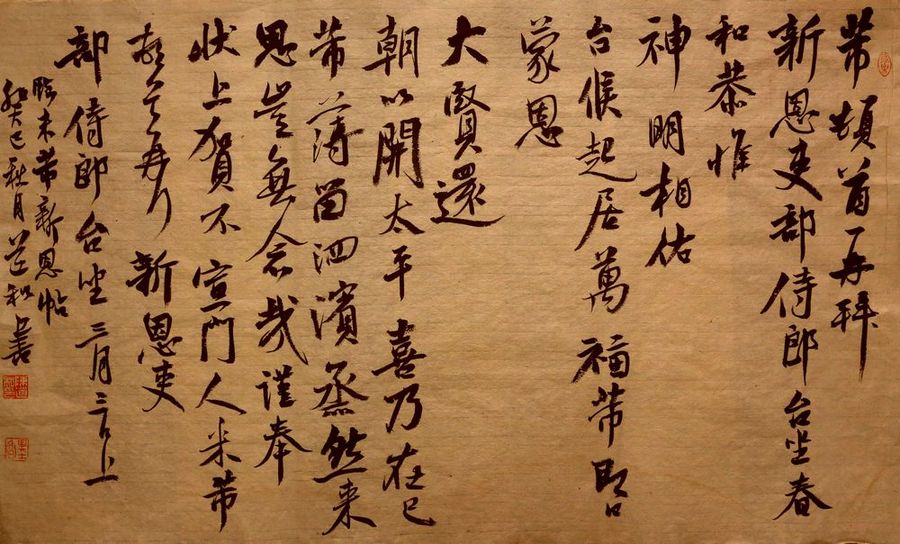 芾頓首再拜
新恩吏部侍郎台坐春
和恭惟
神明相佑
台候起居萬福芾即日
蒙恩
大賢還
朝以開太平喜乃在己
芾薄留泗濱烝然来
思豈無念哉謹奉
状上賀不宣門人米芾
頓首再拜新恩吏
部侍郎台坐三月三日上
臨米芾新恩帖
癸巳秋月和書